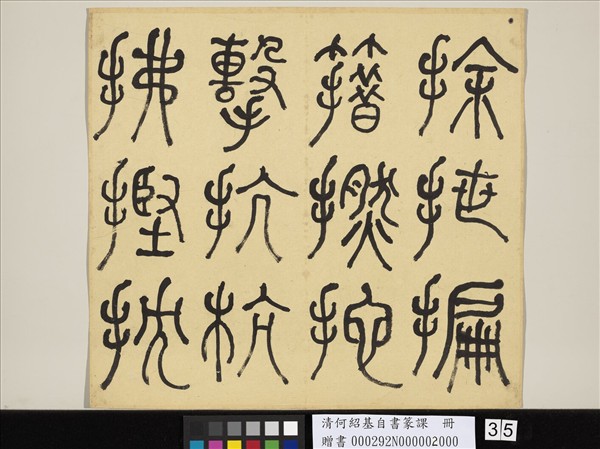 拂摼抌
擊抗杭
簎撚拕
捈抴揙
清何紹基自書篆課 冊
贈書 000292N000002000
35